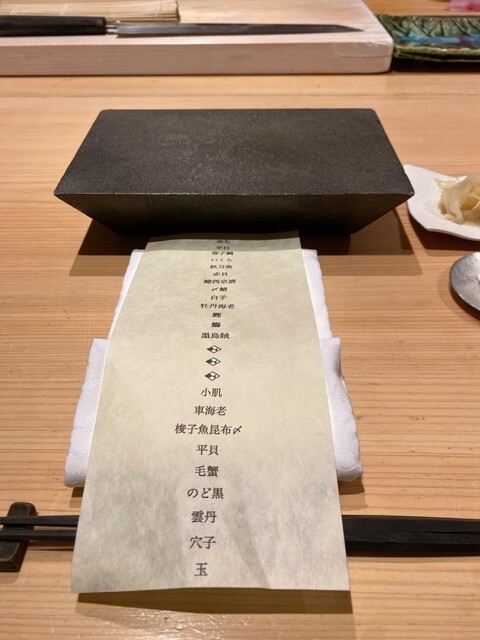 平目
春子鯛
いくら
秋刀魚
赤貝
鰆西京漬
〆鯖
白子
牡丹海老
鰹
鰤
墨烏賊
小肌
車海老
梭子魚昆布〆
平貝
毛蟹
のど黒
雲丹
穴子
玉